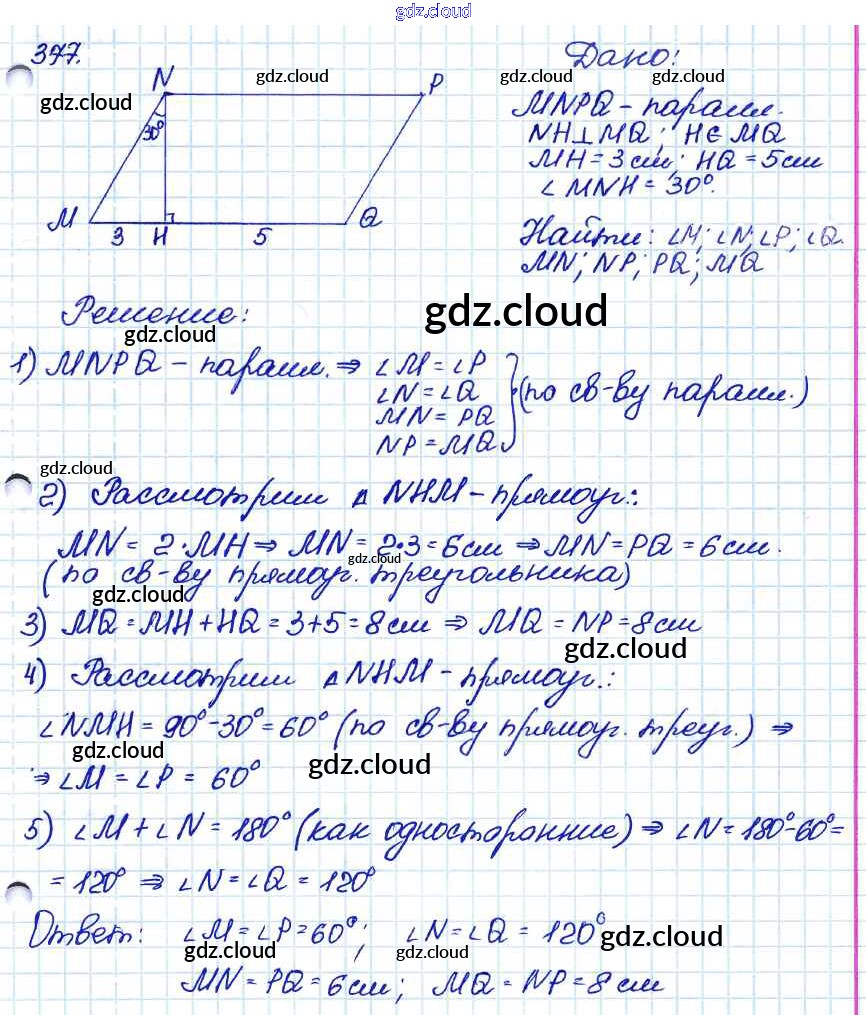 gdz.cloud
377.
Дано:
gdz.cloud gdz.cloud
gdz.cloud
N P
30°
M 3 H 5 Q
MNPQ - паралл.
NH⊥MQ; H∈MQ
MH = 3 см; HQ = 5 см
∠MNH = 30°.
Найти: ∠M; ∠N; ∠P; ∠Q.
MN; NP; PQ; MQ
Решение:
gdz.cloud
gdz.cloud
1) MNPQ - паралл. ⇒ ∠M = ∠P
∠N = ∠Q
MN = PQ
NP = MQ } (по св-ву паралл.)
gdz.cloud
2) Рассмотрим Δ NHM - прямоуг.:
MN = 2·MH ⇒ MN = 2·3 = 6 см ⇒ MN = PQ = 6 см.
gdz.cloud
(по св-ву прямоуг. треугольника)
gdz.cloud
3) MQ = MH + HQ = 3+5 = 8 см ⇒ MQ = NP = 8 см
gdz.cloud
4) Рассмотрим Δ NHM - прямоуг.:
∠NMH = 90° - 30° = 60° (по св-ву прямоуг. треуг.) ⇒
gdz.cloud
gdz.cloud
⇒ ∠M = ∠P = 60°
5) ∠M + ∠N = 180° (как односторонние) ⇒ ∠N = 180° - 60° =
= 120° ⇒ ∠N = ∠Q = 120°
Ответ: ∠M = ∠P = 60°; ∠N = ∠Q = 120°
gdz.cloud
gdz.cloud gdz.cloud
MN = PQ = 6 см; MQ = NP = 8 см